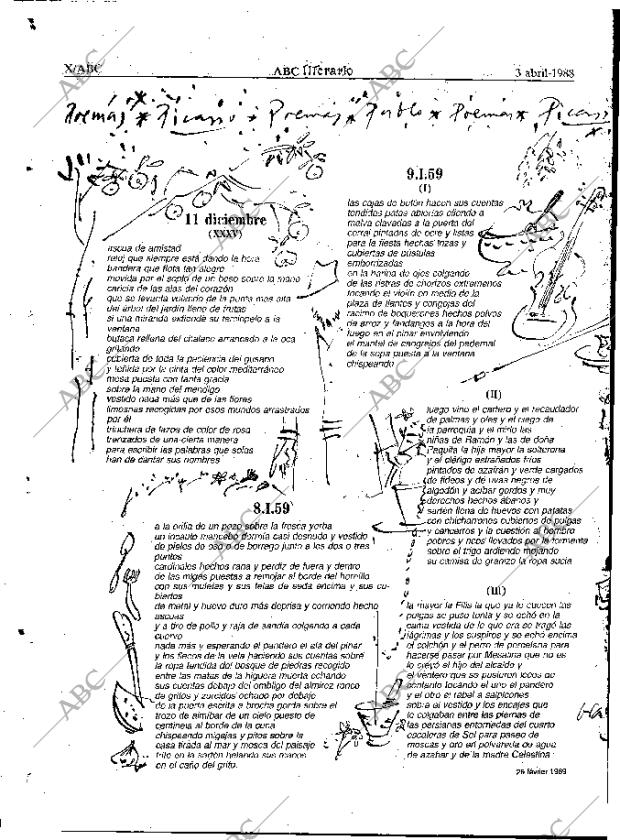 X/ABC
ABC literario
3 abril-1988
Poemas * Picasso * Poemas * Pablo * Poemas * Picasso
11 diciembre
(XXXV)
ascua de amistad
reloj que siempre está dando la hora
bandera que flota tan alegre
movida por el soplo de un beso sobre la mano
caricia de las alas del corazón
que se levanta volando de la punta más alta
del árbol del jardín lleno de frutas
si una mirada extiende su terciopelo a la
ventana
butaca rellena del chaleco arrancado a la oca
gritando
cubierta de toda la paciencia del gusano
y teñida por la cinta del color mediterráneo
mesa puesta con tanta gracia
sobre la mano del mendigo
vestido nada más que de las flores
limosnas recogidas por esos mundos arrastrados
por él
trinchera de lazos de color de rosa
trenzados de una cierta manera
para escribir las palabras que solas
han de cantar sus nombres
8.I.59
a la orilla de un pozo sobre la fresca yerba
un incauto mancebo dormía casi desnudo y vestido
de pieles de oso o de borrego junto a los dos o tres
puntos
cardinales hechos rana y perdiz de fuera y dentro
de las migas puestas a remojar al borde del hornillo
con sus muletas y sus telas de seda encima y sus cu-
biertos
de metal y huevo duro más deprisa y corriendo hecho
ascuas
y a tiro de pollo y raja de sandía colgando a cada
cuervo
nada más y esperando el pandero el ala del pinar
y los flecos de la vela haciendo sus cuentas sobre
la ropa tendida del bosque de piedras recogido
entre las matas de la higuera muerta echando
sus cuentas debajo del ombligo del almirez ronco
de gritos y zurcidos echado por debajo
de la puerta escrita a brocha gorda sobre el
trozo de almíbar de un cielo puesto de
centinela al borde de la cuna
chispeando migajas y pitos sobre la
casa tirada al mar y mosca del paisaje
frito en la sartén helando sus manos
en el caño del grito.
9.I.59
(I)
las cajas de betún hacen sus cuentas
tendidas patas abiertas oliendo a
malva clavadas a la puerta del
corral pintadas de ocre y listas
para la fiesta hechas trizas y
cubiertas de pústulas
emborrizadas
en la harina de ojos colgando
de las ristras de chorizos extremeños
tocando el violín en medio de la
plaza de llantos y congojas del
racimo de boquerones hechos polvos
de arroz y fandangos a la hora del
fuego en el pinar envolviendo
el mantel de cangrejos del pedernal
de la sopa puesta a la ventana
chispeando
(II)
luego vino el cartero y el recaudador
de palmas y olés y el ciego de
la parroquia y el mirlo las
niñas de Ramón y las de doña
Paquita la hija mayor la solterona
y el clérigo estrañados fríos
pintados de azafrán y verde cargados
de fideos y de uvas negras de
algodón y acíbar gordos y muy
derechos hechos ábanos y
sartén llena de huevos con patatas
con chicharrones cubiertos de pulgas
y cencerros y la cuestión al hombro
pobres y ricos llevados por la tormenta
sobre el trigo ardiendo mojando
su camisa de granizo la ropa sucia
(III)
la mayor la Filis la que ya le cuecen las
pulgas se puso tonta y se echó en la
cama vestida de lo que era se tragó las
lágrimas y los suspiros y se echó encima
el colchón y el perro de porcelana para
hacerse pasar por Mesalina que no es
lo creyó el hijo del alcalde y
el ventero que se pusieron locos de
contento tocando el uno el pandero
y el otro el rabel a salpicones
sobre el vestido y los encajes que
le colgaban entre las piernas de
las persianas entornadas del cuarto
cocoleras de Sol para paseo de
moscas y oro en polvareda de agua
de azahar y de la madre Celestina
26 février 1959